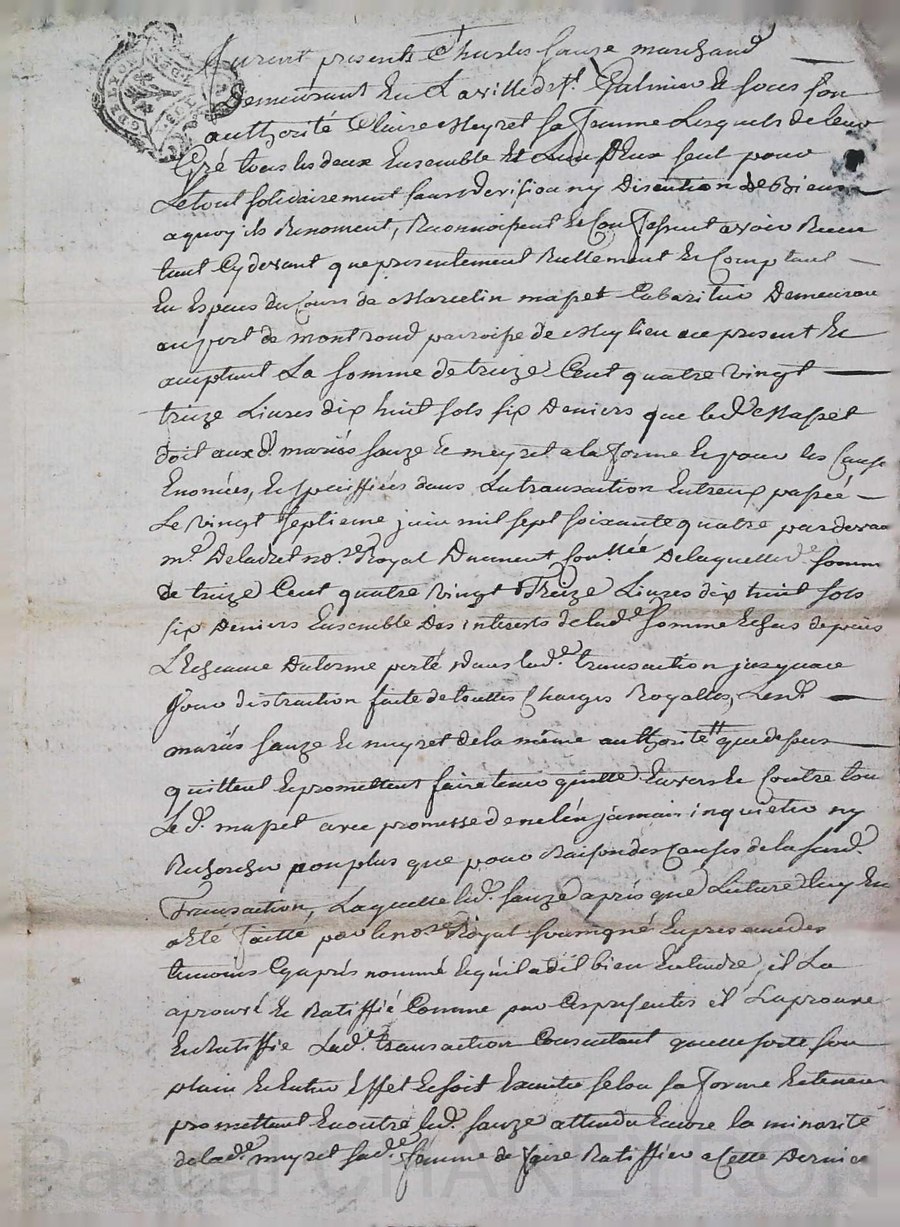 furent presents Charles sauze marchand
Demeurant En La ville de St. Galmier Et sous son
authorité Claire Meyret sa femme Lesquels de leur
Gré tous les deux Ensemble Et L'un D'Eux seul pour
Le tout solidairement sans division ny Discution de Biens
a quoy ils Renoncent, Reconnoissent Et Confessent avoir Receu
tant Cy devant que presentement Réellement Et Comptant
En Especes du Cours de Marcelin masset Cabaritier Demeurant
au port de montrond parroisse de Meylieu ace present Et
acceptant La somme de treize Cent quatre vingt
treize Livres dix huit sols six Deniers que led. Masset
doit aux d. mariés sauze Et meyret a la forme Et pour les Causes
Enoncées, Et speciffiées dans La transaction Entreux passée
Le vingt septieme juin mil sept soixante quatre par devant
me. Deladret nore. Royal Duement Conttlée De laquelle de. somme
de treize Cent quatre vingt Treize Livres dix huit sols
six Deniers Ensemble Des interests de lade. somme Echus depuis
L'Echeance Du terme porté dans lade. transaction jusqu'a ce
Jour distraction faite de toutes Charges Royalles, Lesd.
mariés sauze Et meyret de la même authorité que dessus
quittent Et promettent faire tenir quitte Envers Et Contre tous
Le d. masset avec promesse de ne l'en jamais inquieter ny
Rechercher non plus que pour Raison des Causes de la susd.
Transaction, Laquelle led. sauze après que Lecture Luy En
a Eté faitte par le nore. Royal soussigné En presence des
temoins Cy après nommé Et qu'il a dit bien Entendre, il La
aprouvé Et Ratiffié Comme par Ces presentes il L'aprouve
Et Ratiffie Lade. transaction Consentant qu'elle sorte son
plain Et Entier Effet Et soit Executée selon sa forme Et teneur
promettant En outre led. sauze attendu Encore la minorité
de lade. meyret sade. femme de faire Ratiffier a Cette Derniere
Pascal CHARETRON